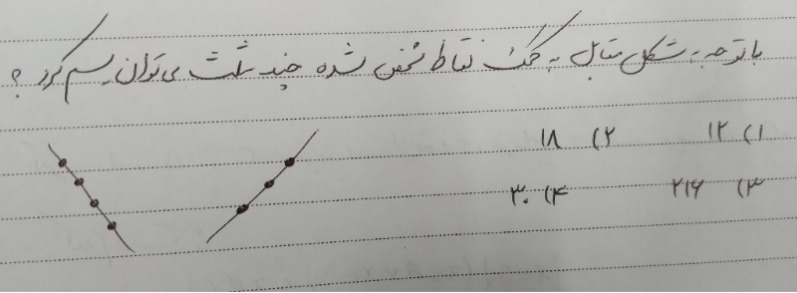 با توجه به شکل مقابل به کمک نقاط مشخص شده چند مثلث می‌توان رسم کرد؟
۱) ۱۲ ۲) ۱۸
۳) ۲۱۶ ۴) ۳۰